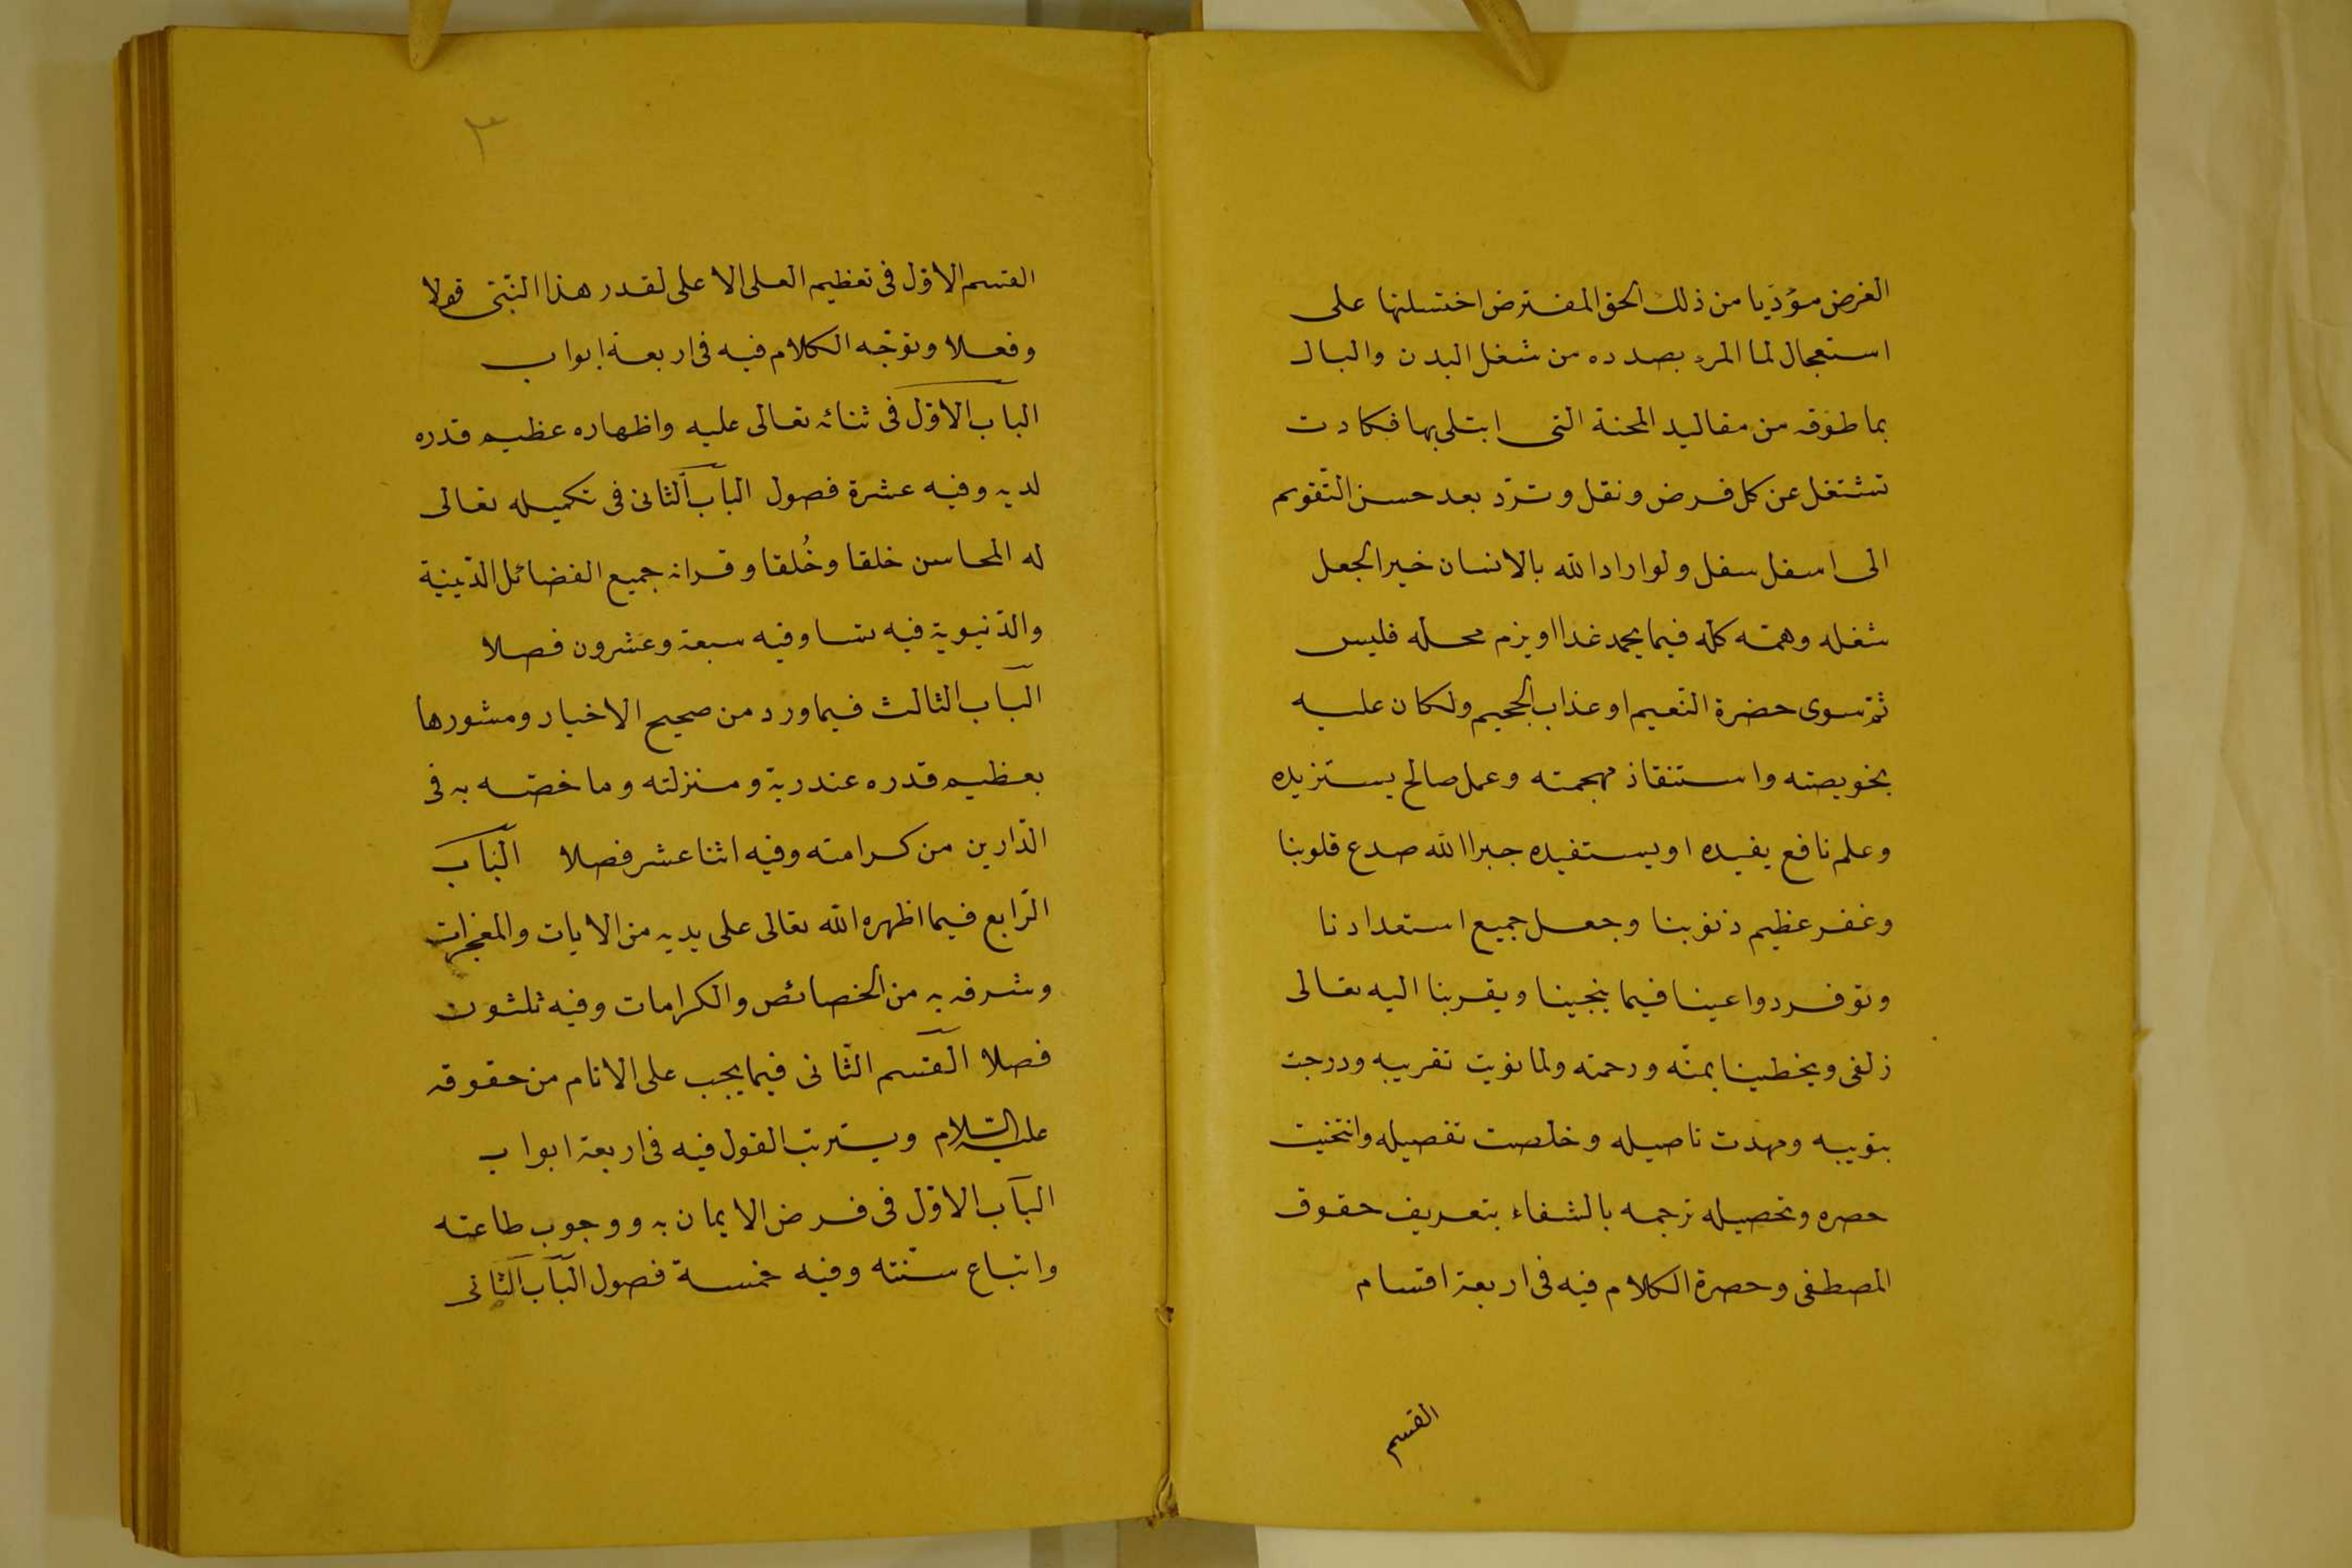 الغرض مؤدّيا من ذلك الحق المفترض اختسلنها على
استعجال لما المرء بصدده من شغل البدن والبال
بما طوّقه من مقاليد المحنة التى ابتلى بها فكادت
تشتغل عن كل فرض ونقل وتردّ بعد حسن التّقويم
الى اسفل سفل ولو اراد الله بالانسان خيرا لجعل
شغله وهمّه كلّه فيما يحمد غدا او يزم محلّه فليس
ثمّ سوى حضرة النّعيم او عذاب الجحيم ولكان عليه
بخويصته واستنقاذ مهجمته وعمل صالح يستزيده
وعلم نافع يفيده او يستفيده جبرا الله صدع قلوبنا
وغفر عظيم ذنوبنا وجعل جميع استعدادنا
وتوفر دواعينا فيما ينجينا ويقربنا اليه تعالى
زلفى ويخطينا بمنّه ورحمته ولما نويت تقريبه ودرجت
بتويبه ومهدت تاصيله وخلصت تفصيله وانتخيت
حصره وتحصيله ترجمه بالشفاء بتعريف حقوق
المصطفى وحصرة الكلام فيه فى اربعة اقسام
القسم
٣
القسم الاوّل فى تعظيم العلى الاعلى لقدر هذا النّبىّ قولا
وفعلا وتوجّه الكلام فيه فى اربعة ابواب
الباب الاوّل فى ثنائه تعالى عليه واظهاره عظيم قدره
لديه وفيه عشرة فصول الباب الثانى فى تكميله تعالى
له المحاسن خلقا وخُلقا وقرانه جميع الفضائل الدّينية
والدّنيوية فيه نسا وفيه سبعة وعشرون فصلا
الباب الثالث فيما ورد من صحيح الاخبار ومشورها
بعظيم قدره عند ربّه ومنزلته وما خصّه به فى
الدّارين من كرامته وفيه اثنا عشر فصلا الباب
الرّابع فيما اظهره الله تعالى على يديه من الايات والمعجزات
وشرفه به من الخصائص والكرامات وفيه ثلثون
فصلا القسم الثّانى فيما يجب على الانام من حقوقه
عليه السّلام ويترتب القول فيه فى اربعة ابواب
الباب الاوّل فى فرض الايمان به ووجوب طاعته
واتباع سنّته وفيه خمسة فصول الباب الثّانى